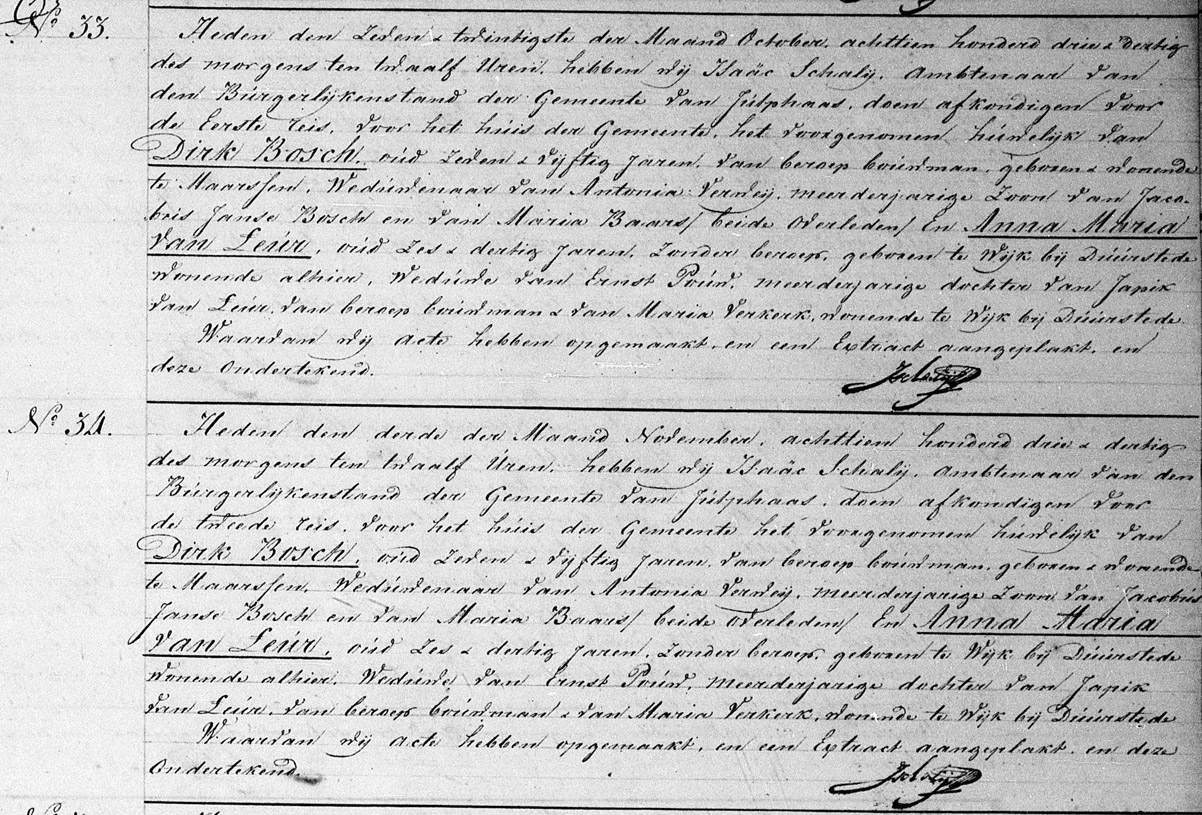 No. 33.
Heden den Zeven & twintigste der Maand October, achttien honderd drie & dertig
des morgens ten twaalf Uren, hebben wij Isaäc Schalij, Ambtenaar van
den Burgerlijkenstand der Gemeente van Jutphaas, doen afkondigen voor
de Eerste reis, voor het huis der Gemeente, het voorgenomen huwelijk van
Dirk Bosch, oud Zeven & vijftig Jaren, van beroep bouwman, geboren & wonende
te Maarssen, Weduwenaar van Antonia Verweij, meerderjarige Zoon van Jaco-
bus Janse Bosch en van Maria Baars / beide overleden / En Anna Maria
van Leur, oud Zes & dertig Jaren, Zonder beroep, geboren te Wijk bij Duurstede
wonende alhier, Weduwe van Ernst Pouw, meerderjarige dochter van Japik
van Leur, van beroep bouwman & van Maria Verkerk, wonende te Wijk bij Duurstede
Waarvan wij acte hebben opgemaakt, en een Extract aangeplakt, en
deze Ondertekend.
No. 34.
Heden den derde der Maand November, achttien honderd drie & dertig
des morgens ten twaalf Uren, hebben wij Isaäc Schalij, Ambtenaar van den
Burgerlijkenstand der Gemeente van Jutphaas, doen afkondigen voor
de tweede reis, voor het huis der Gemeente het voorgenomen huwelijk van
Dirk Bosch, oud Zeven & vijftig Jaren, van beroep bouwman, geboren & wonende
te Maarssen, Weduwenaar van Antonia Verweij, meerderjarige Zoon van Jacobus
Janse Bosch en van Maria Baars / beide overleden / En Anna Maria
van Leur, oud Zes & dertig Jaren, Zonder beroep, geboren te Wijk bij Duurstede
wonende alhier, Weduwe van Ernst Pouw, meerderjarige dochter van Japik
van Leur, van beroep bouwman & van Maria Verkerk, wonende te Wijk bij Duurstede
Waarvan wij acte hebben opgemaakt, en een Extract aangeplakt, en deze
Ondertekend.